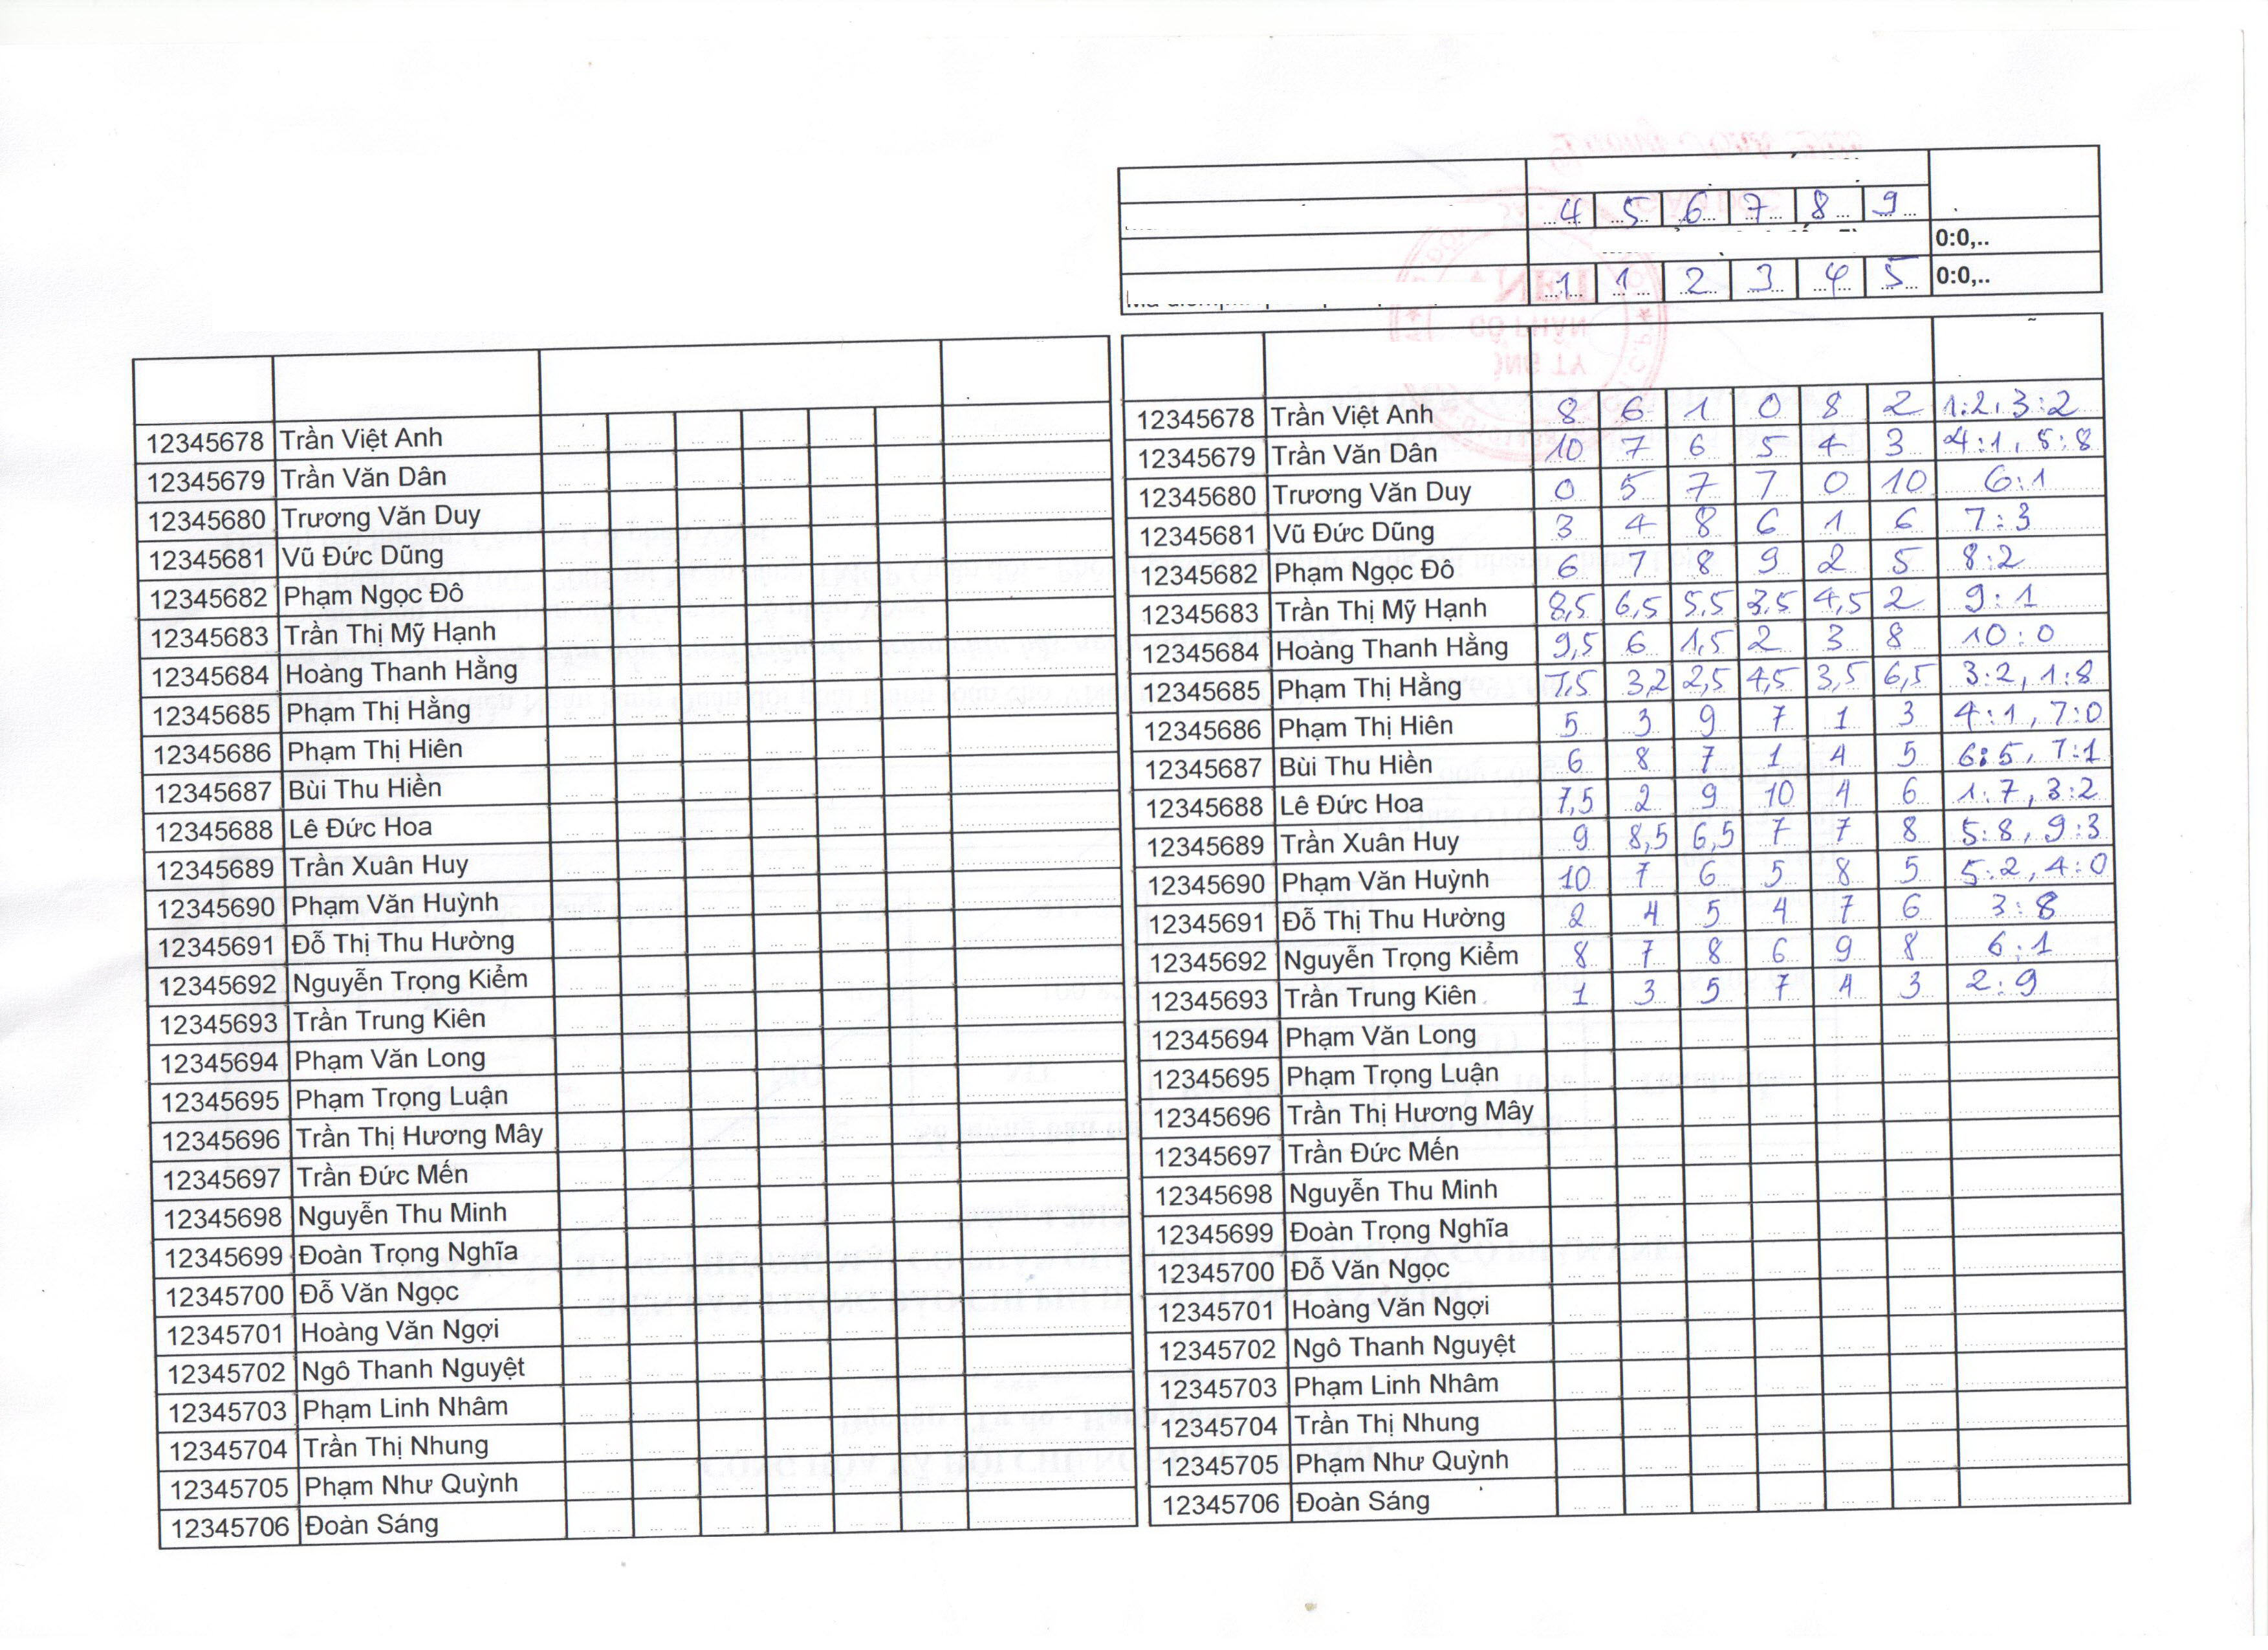 4 5 6 7 8 9
0:0,..
1 1 2 3 4 5 0:0,..
12345678 Trần Việt Anh
12345679 Trần Văn Dân
12345680 Trương Văn Duy
12345681 Vũ Đức Dũng
12345682 Phạm Ngọc Đô
12345683 Trần Thị Mỹ Hạnh
12345684 Hoàng Thanh Hằng
12345685 Phạm Thị Hằng
12345686 Phạm Thị Hiên
12345687 Bùi Thu Hiền
12345688 Lê Đức Hoa
12345689 Trần Xuân Huy
12345690 Phạm Văn Huỳnh
12345691 Đỗ Thị Thu Hường
12345692 Nguyễn Trọng Kiểm
12345693 Trần Trung Kiên
12345694 Phạm Văn Long
12345695 Phạm Trọng Luận
12345696 Trần Thị Hương Mây
12345697 Trần Đức Mến
12345698 Nguyễn Thu Minh
12345699 Đoàn Trọng Nghĩa
12345700 Đỗ Văn Ngọc
12345701 Hoàng Văn Ngợi
12345702 Ngô Thanh Nguyệt
12345703 Phạm Linh Nhâm
12345704 Trần Thị Nhung
12345705 Phạm Như Quỳnh
12345706 Đoàn Sáng
12345678 Trần Việt Anh 8 6 1 0 8 2 1:2, 3:2
12345679 Trần Văn Dân 10 7 6 5 4 3 4:1, 5:8
12345680 Trương Văn Duy 0 5 7 7 0 10 6:1
12345681 Vũ Đức Dũng 3 4 8 6 1 6 7:3
12345682 Phạm Ngọc Đô 6 7 8 9 2 5 8:2
12345683 Trần Thị Mỹ Hạnh 8,5 6,5 5,5 3,5 4,5 2 9:1
12345684 Hoàng Thanh Hằng 9,5 6 1,5 2 3 8 10:0
12345685 Phạm Thị Hằng 7,5 3,2 2,5 4,5 3,5 6,5 3:2, 1:8
12345686 Phạm Thị Hiên 5 3 9 7 1 3 4:1, 7:0
12345687 Bùi Thu Hiền 6 8 7 1 4 5 6:5, 7:1
12345688 Lê Đức Hoa 7,5 2 9 10 4 6 1:7, 3:2
12345689 Trần Xuân Huy 9 8,5 6,5 7 7 8 5:8, 9:3
12345690 Phạm Văn Huỳnh 10 7 6 5 8 5 5:2, 4:0
12345691 Đỗ Thị Thu Hường 2 4 5 4 7 6 3:8
12345692 Nguyễn Trọng Kiểm 8 7 8 6 9 8 6:1
12345693 Trần Trung Kiên 1 3 5 7 4 3 2:9
12345694 Phạm Văn Long
12345695 Phạm Trọng Luận
12345696 Trần Thị Hương Mây
12345697 Trần Đức Mến
12345698 Nguyễn Thu Minh
12345699 Đoàn Trọng Nghĩa
12345700 Đỗ Văn Ngọc
12345701 Hoàng Văn Ngợi
12345702 Ngô Thanh Nguyệt
12345703 Phạm Linh Nhâm
12345704 Trần Thị Nhung
12345705 Phạm Như Quỳnh
12345706 Đoàn Sáng